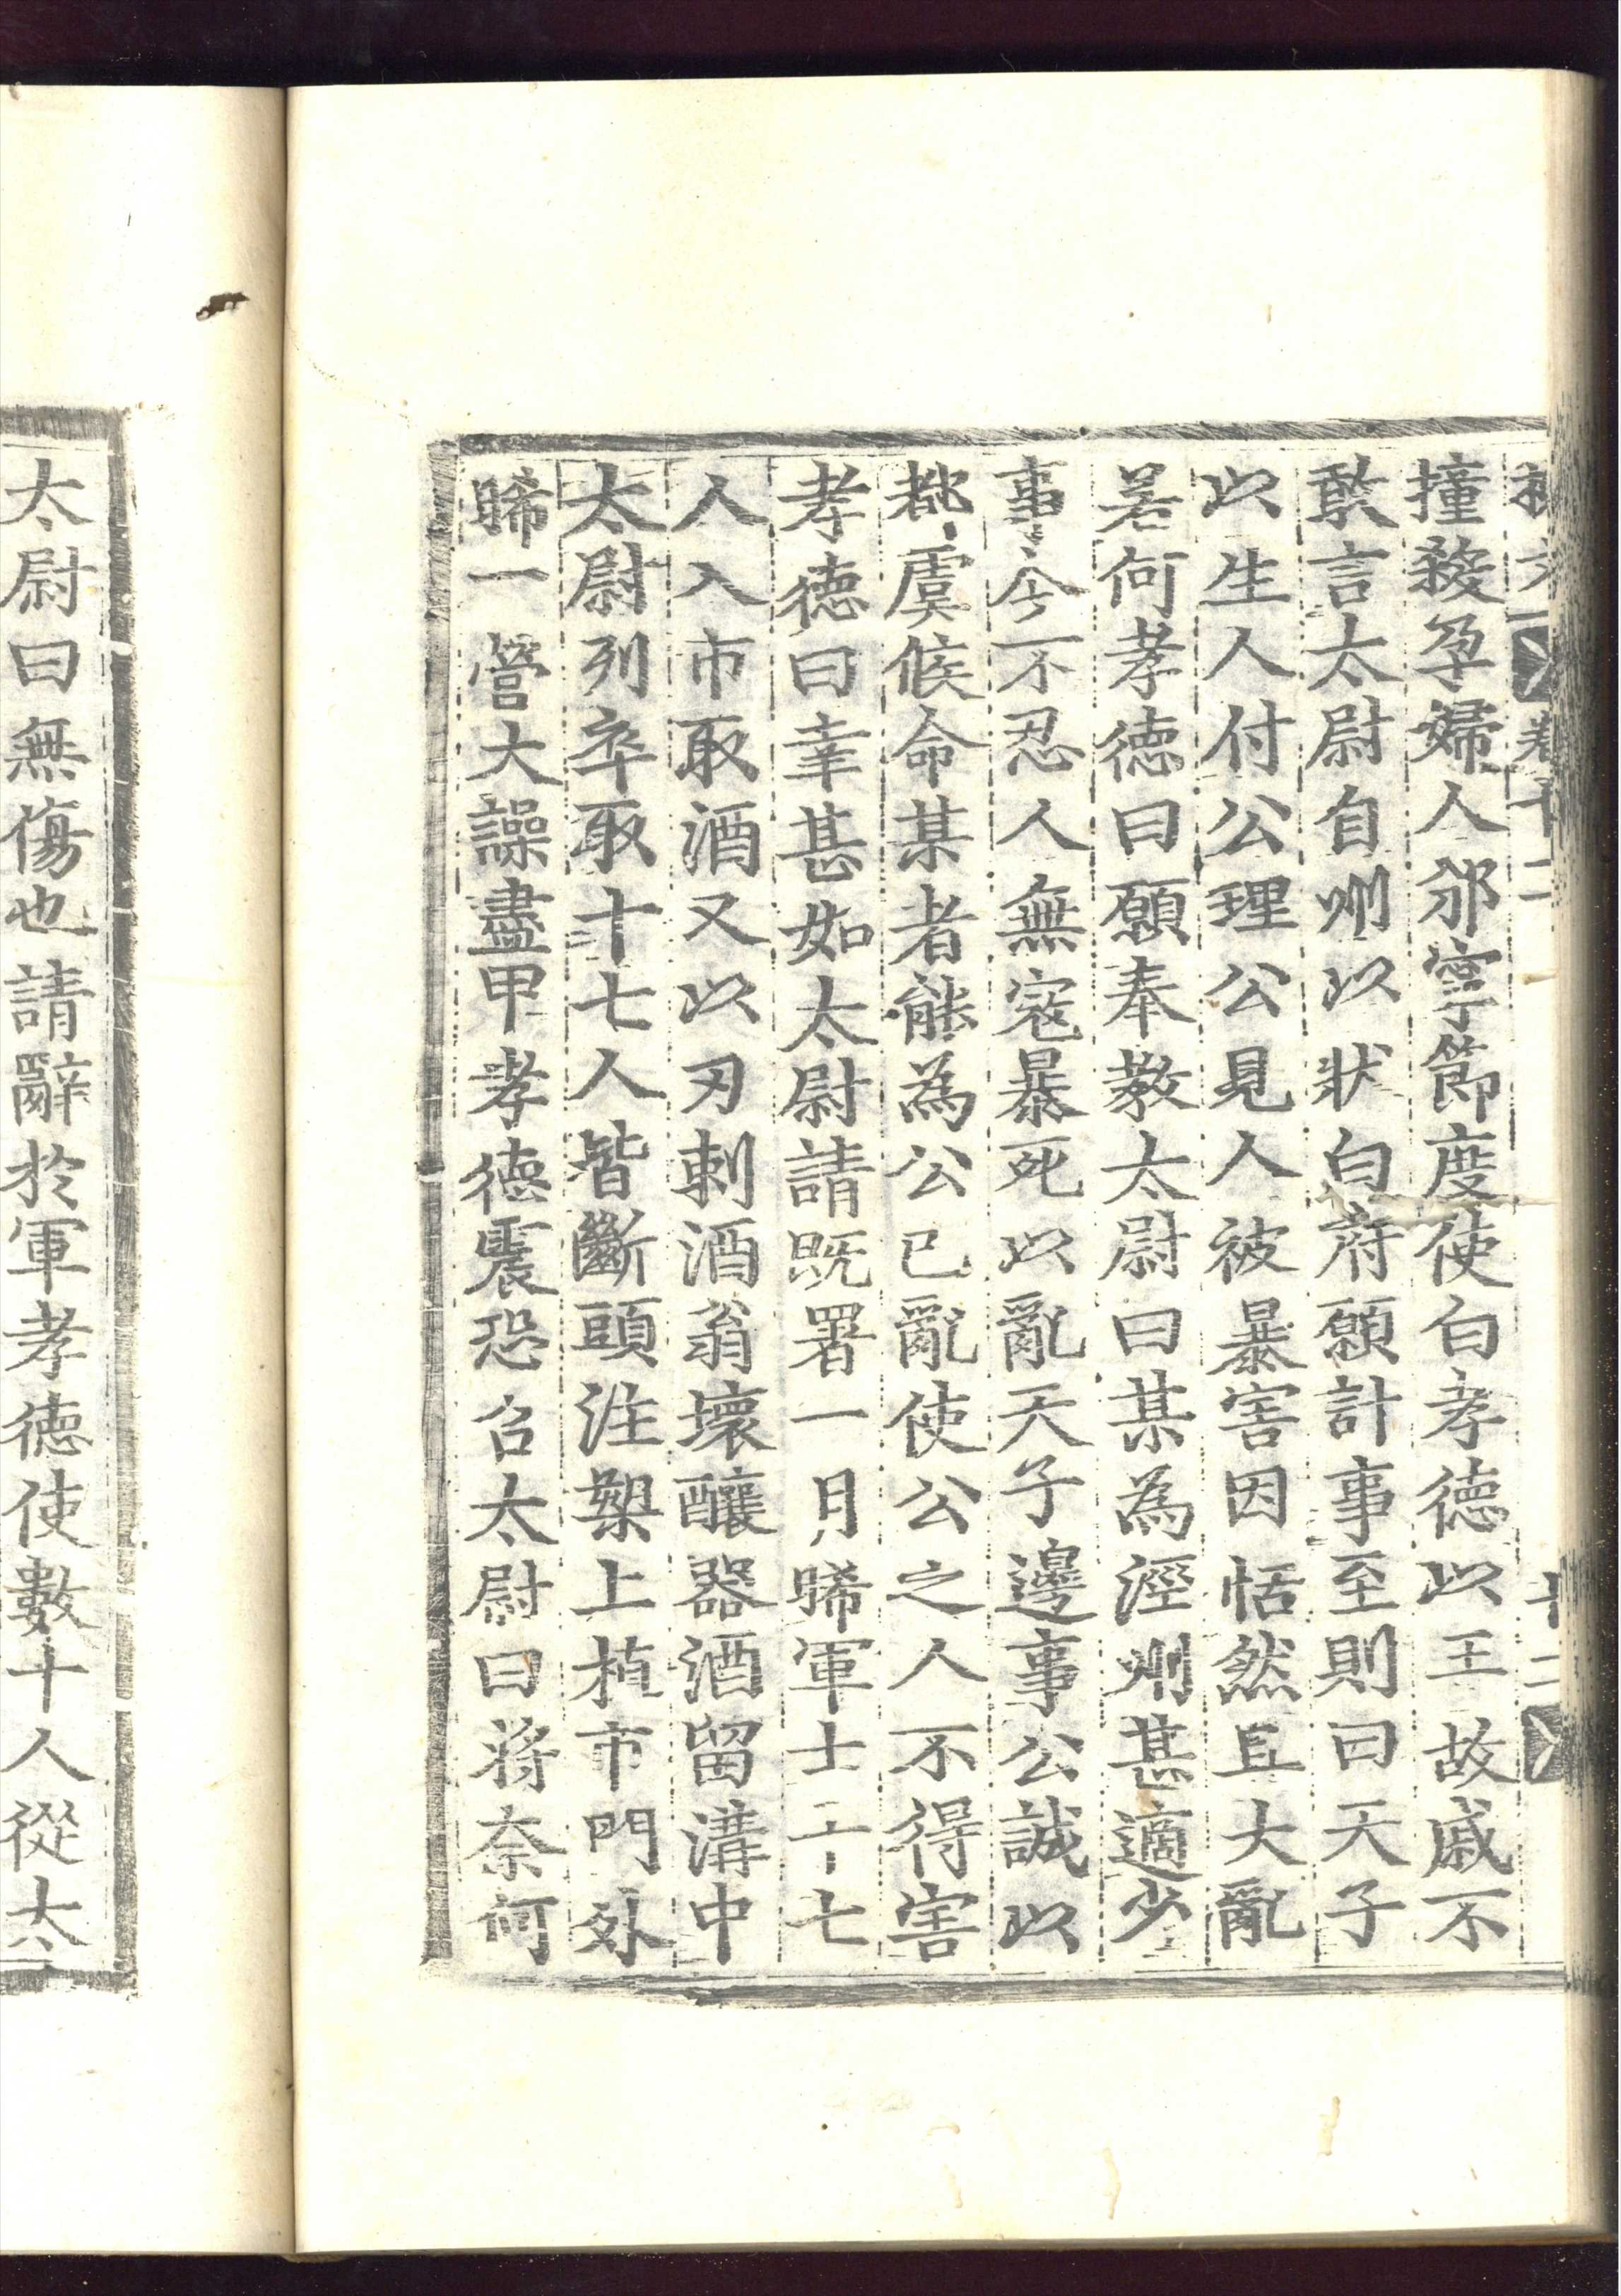 卷十二 十二
撞殺孕婦人邠寧節度使白孝德以王故戚不
敢言太尉自州以狀白府願計事至則曰天子
以生人付公理公見人被暴害因恬然且大亂
若何孝德曰願奉教太尉曰某為涇州甚適少
事今不忍人無寇暴死以亂天子邊事公誠以
都虞候命某者能為公已亂使公之人不得害
孝德曰幸甚如太尉請既署一月晞軍士十七
人入市取酒又以刃刺酒翁壞釀器酒留溝中
太尉列卒取十七人皆斷頭注槊上植市門外
晞一營大譟盡甲孝德震恐召太尉曰將奈何
太尉曰無傷也請辭於軍孝德使數十人從太